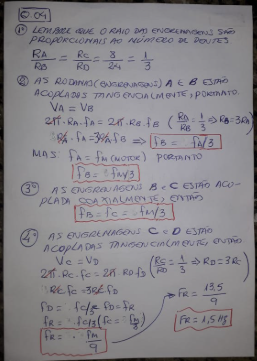 Q.04
1º LEMBRE QUE O RAIO DAS ENGRENAGENS SÃO
PROPORCIONAIS AO NÚMERO DE DENTES
RA/RB = RC/RD = 8/24 = 1/3
2º AS RODANAS (ENGRENAGENS) A E B ESTÃO
ACOPLADAS TANGENCIALMENTE, PORTANTO
VA = VB
2π.RA.fA = 2π.RB.fB (RA/RB = 1/3 ⇒ RB = 3RA)
RA.fA = 3RA.fB ⇒ fB = fA/3
MAS: fA = fM (MOTOR) PORTANTO
fB = fM/3
3º AS ENGRENAGENS B E C ESTÃO ACO-
PLADA COAXIALMENTE, ENTÃO
fB = fC = fM/3
4º AS ENGRENAGENS C E D ESTÃO
ACOPLADAS TANGENCIALMENTE, ENTÃO
VC = VD
2π.RC.fC = 2π.RD.fD (RC/RD = 1/3 ⇒ RD = 3RC)
RC fC = 3RC.fD
fD = fC/3 fD = fR
fR = fC/3 (fC = fM/3)
fR = fM/9
FR = 13,5/9
FR = 1,5 Hz